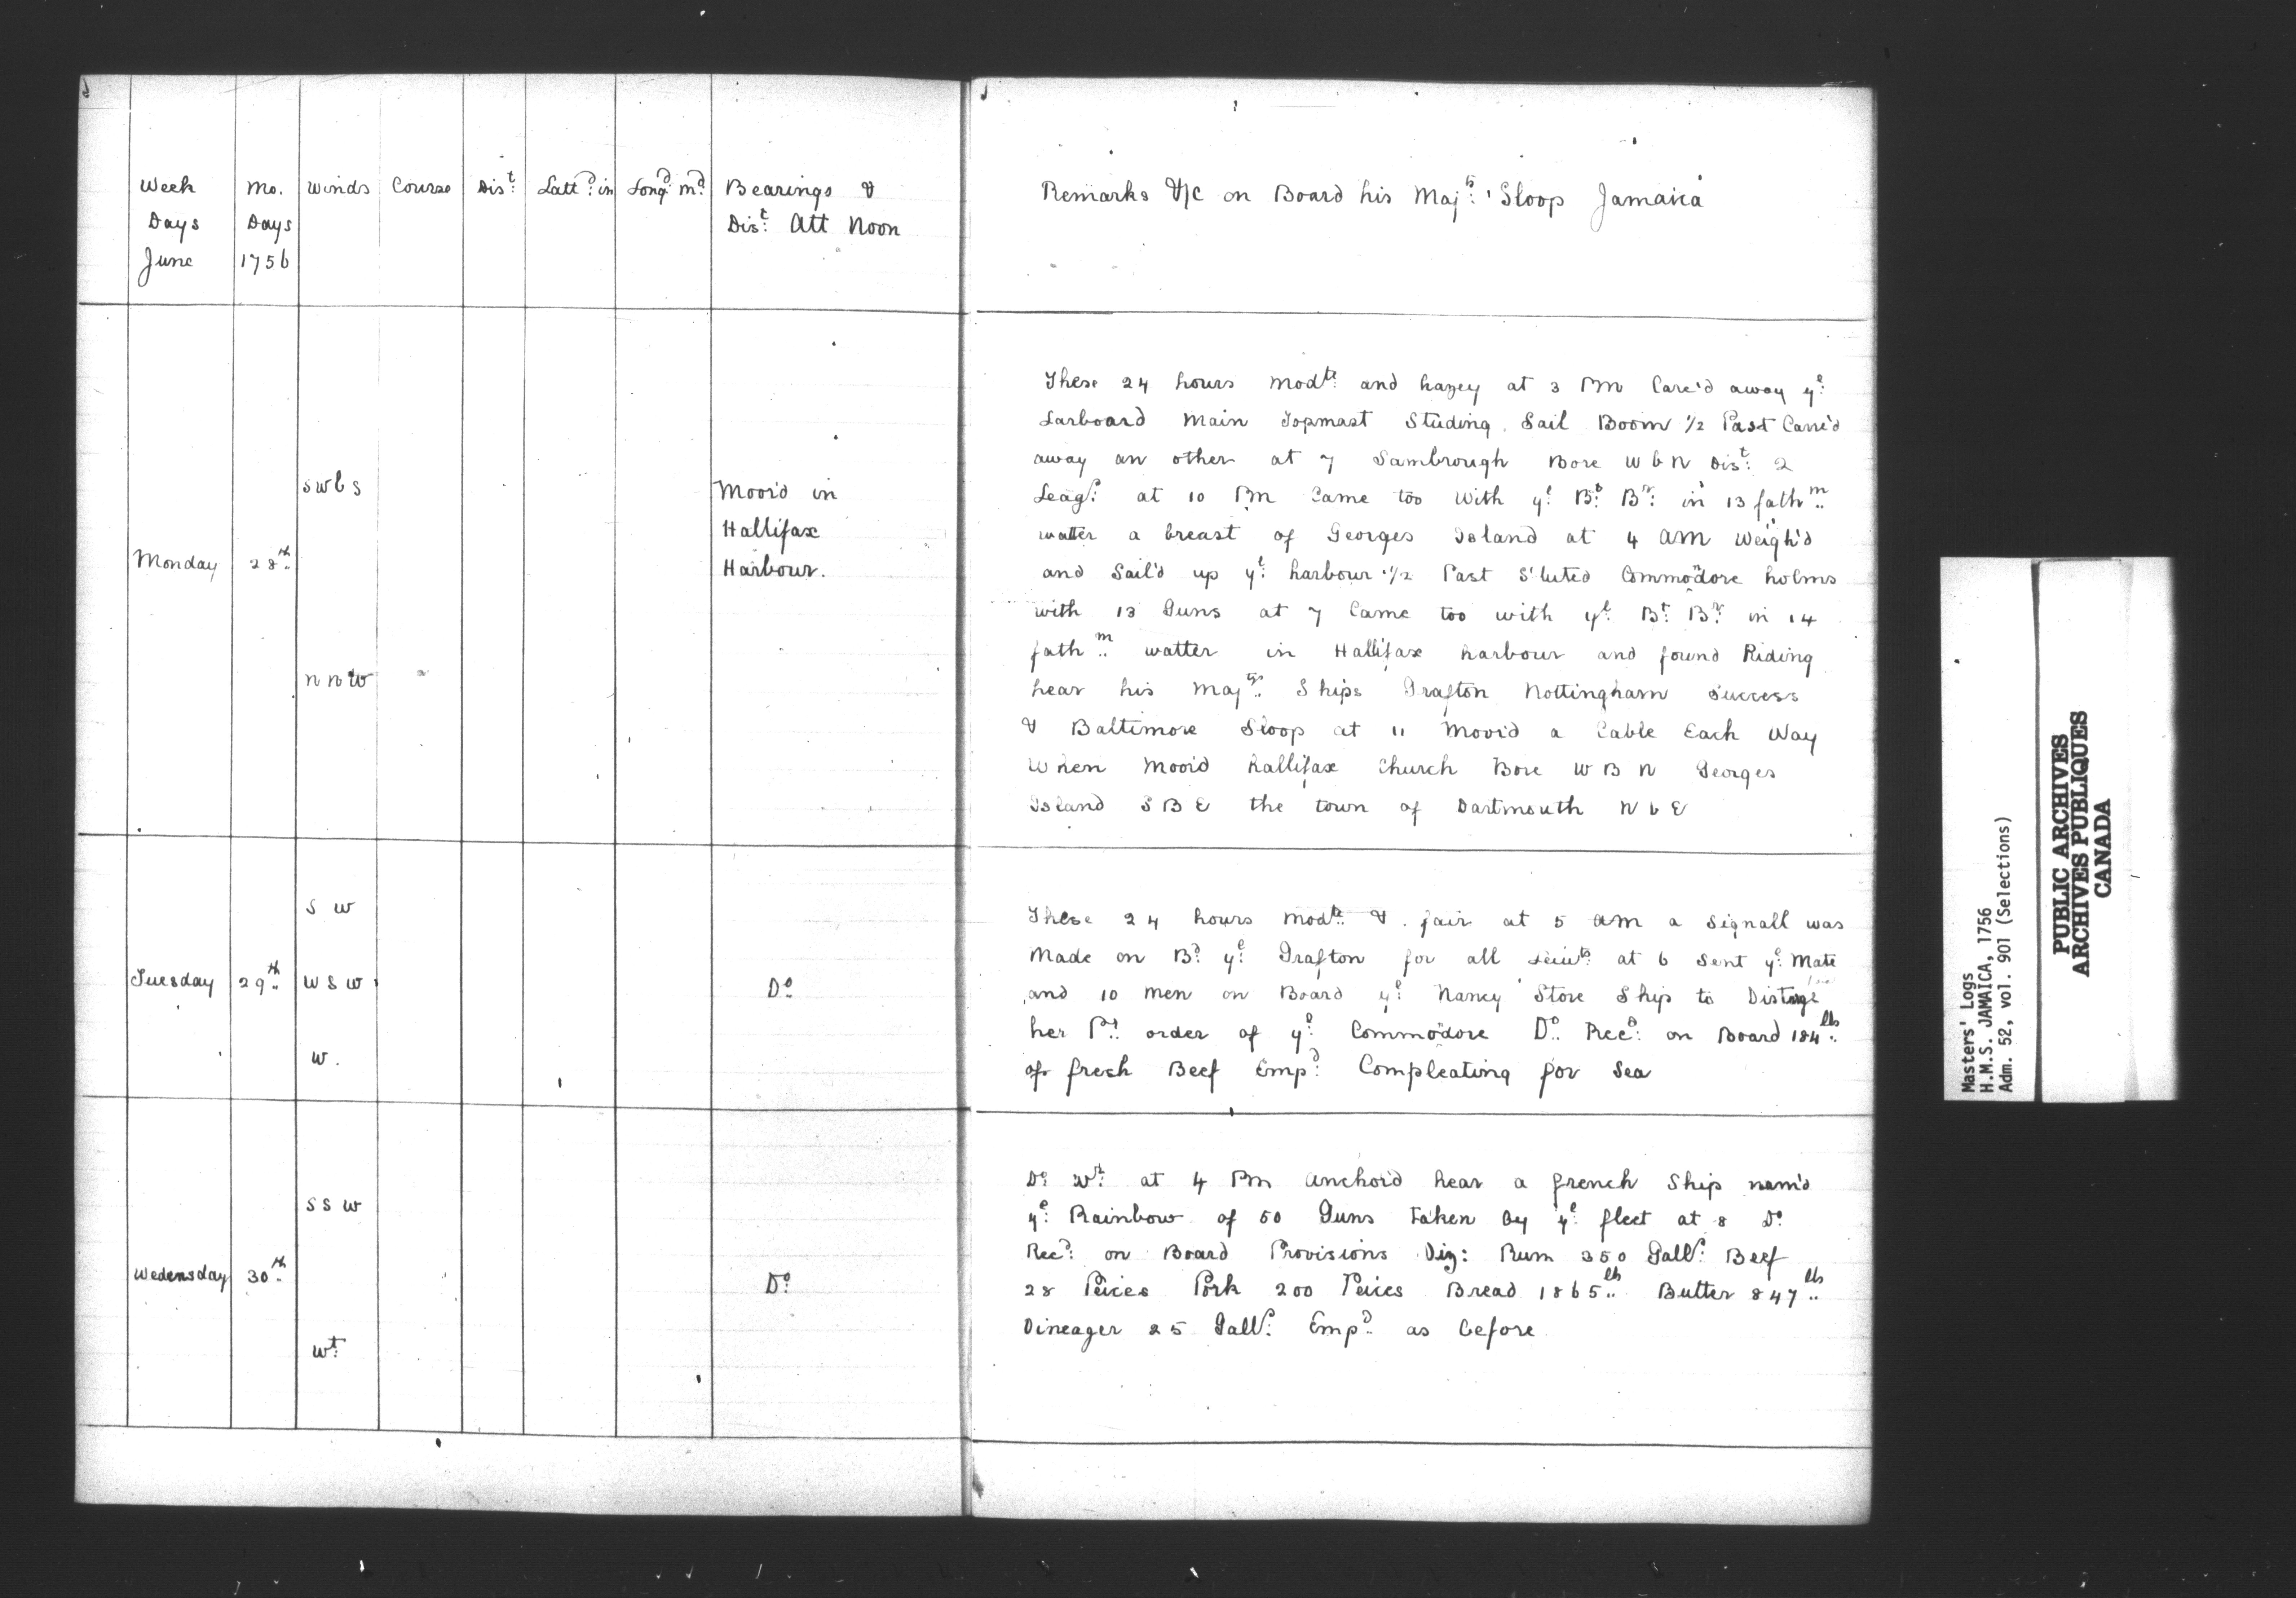 Week Mo. Winds Course Dist: Lattd: in Longd md: Bearings &
Days Days Dist: Att Noon
June 1756
Remarks &c on Board his Majts: Sloop Jamaica
Monday 28th
SWbS
NNW
Moor'd in
Hallifax
Harbour.
These 24 hours Modte: and hazey at 3 PM Care'd away ye:
Larboard Main Topmast Studing Sail Boom 1/2 Past Carre'd
away an other at 7 Sambrough Bore WbN Dist: 2
Leags: at 10 PM Came too With ye: Bt: Br: in 13 fathm
watter a breast of Georges Island at 4 AM Weigh'd
and Sail'd up ye: harbour 1/2 Past S'luted Commodore holms
with 13 Guns at 7 Came too with ye: Bt: Br: in 14
fathm watter in Hallifax harbour and found Riding
hear his Majtys Ships Grafton Nottingham Success
& Baltimore Sloop at 11 Moor'd a Cable Each Way
When Moor'd hallifax Church Bore WBN Georges
Island SBE the town of Dartmouth NbE
Tuesday 29th
S W
W S W
W.
Do:
These 24 hours Modte: & fair at 5 AM a Signall was
Made on Bd: ye: Grafton for all Leiuts: at 6 Sent ye: Mate
and 10 Men on Board ye: Nancy Store Ship to
her Pr: order of ye: Commodore Do: Recd: on Board 184lb:
of fresh Beef Empd: Compleating for Sea
Wedensday 30th
S S W
Wt:
Do:
Do: Wr: at 4 PM anchor'd hear a french Ship nam'd
ye: Rainbow of 50 Guns taken by ye: fleet at 8 Do:
Recd: on Board Provisions Viz: Rum 350 Galls: Beef
28 Peices Pork 200 Peices Bread 1865lb Butter 847lb
Vineager 25 Galls: Empd: as before
Masters' Logs
H.M.S. JAMAICA, 1756
Adm. 52, vol. 901 (Selections)
PUBLIC ARCHIVES
ARCHIVES PUBLIQUES
CANADA